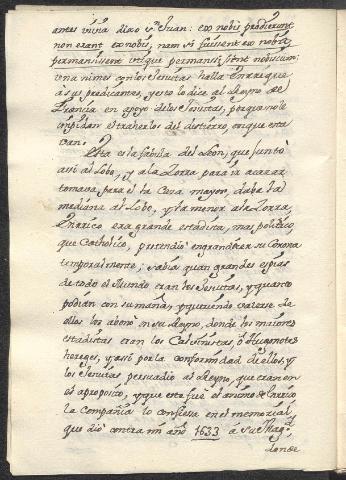 antes viua dixo Sn Juan: ex nobis prodierunt
non erant ex nobis, nam si fuissent ex nobis,
permansissent utique permansissent nobiscum:
unanimes con los Jesuitas halla Enrique
à sus predicantes, y esto lo dice al Reyno de
Francia en apoyo de los Jesuitas, porque no le
impidan el traherlos del destierro, en que esta
van:
Esta es la fabula del Leon, que juntò
assi al Lobo, y a la Zorra para ir a cazar
tomava para el la Caza mayor, daba la
mediana al Lobo, y la menor a la Zorra,
Enrrico era grande estadista, mas politico,
que Catholico, pretendiò engrandezer su Corona
temporalmente; sabia quan grandes espias
de todo el Mundo eran los Jesuitas, y quanto
podian con su maña, y queriendo valerse de
ellos los abonò en su Reyno, donde los maiores
estadistas eran los Calvinistas, ò Hugonotes
hereges, y assi por la conformidad de ellos, y
los Jesuitas persuadio al Reyno, que eran en
el aproposito, y que este fue el animo de Enrrico
la Compañia lo confiesa en el memorial
que diò contra mi año 1633 à su Magd.
donde